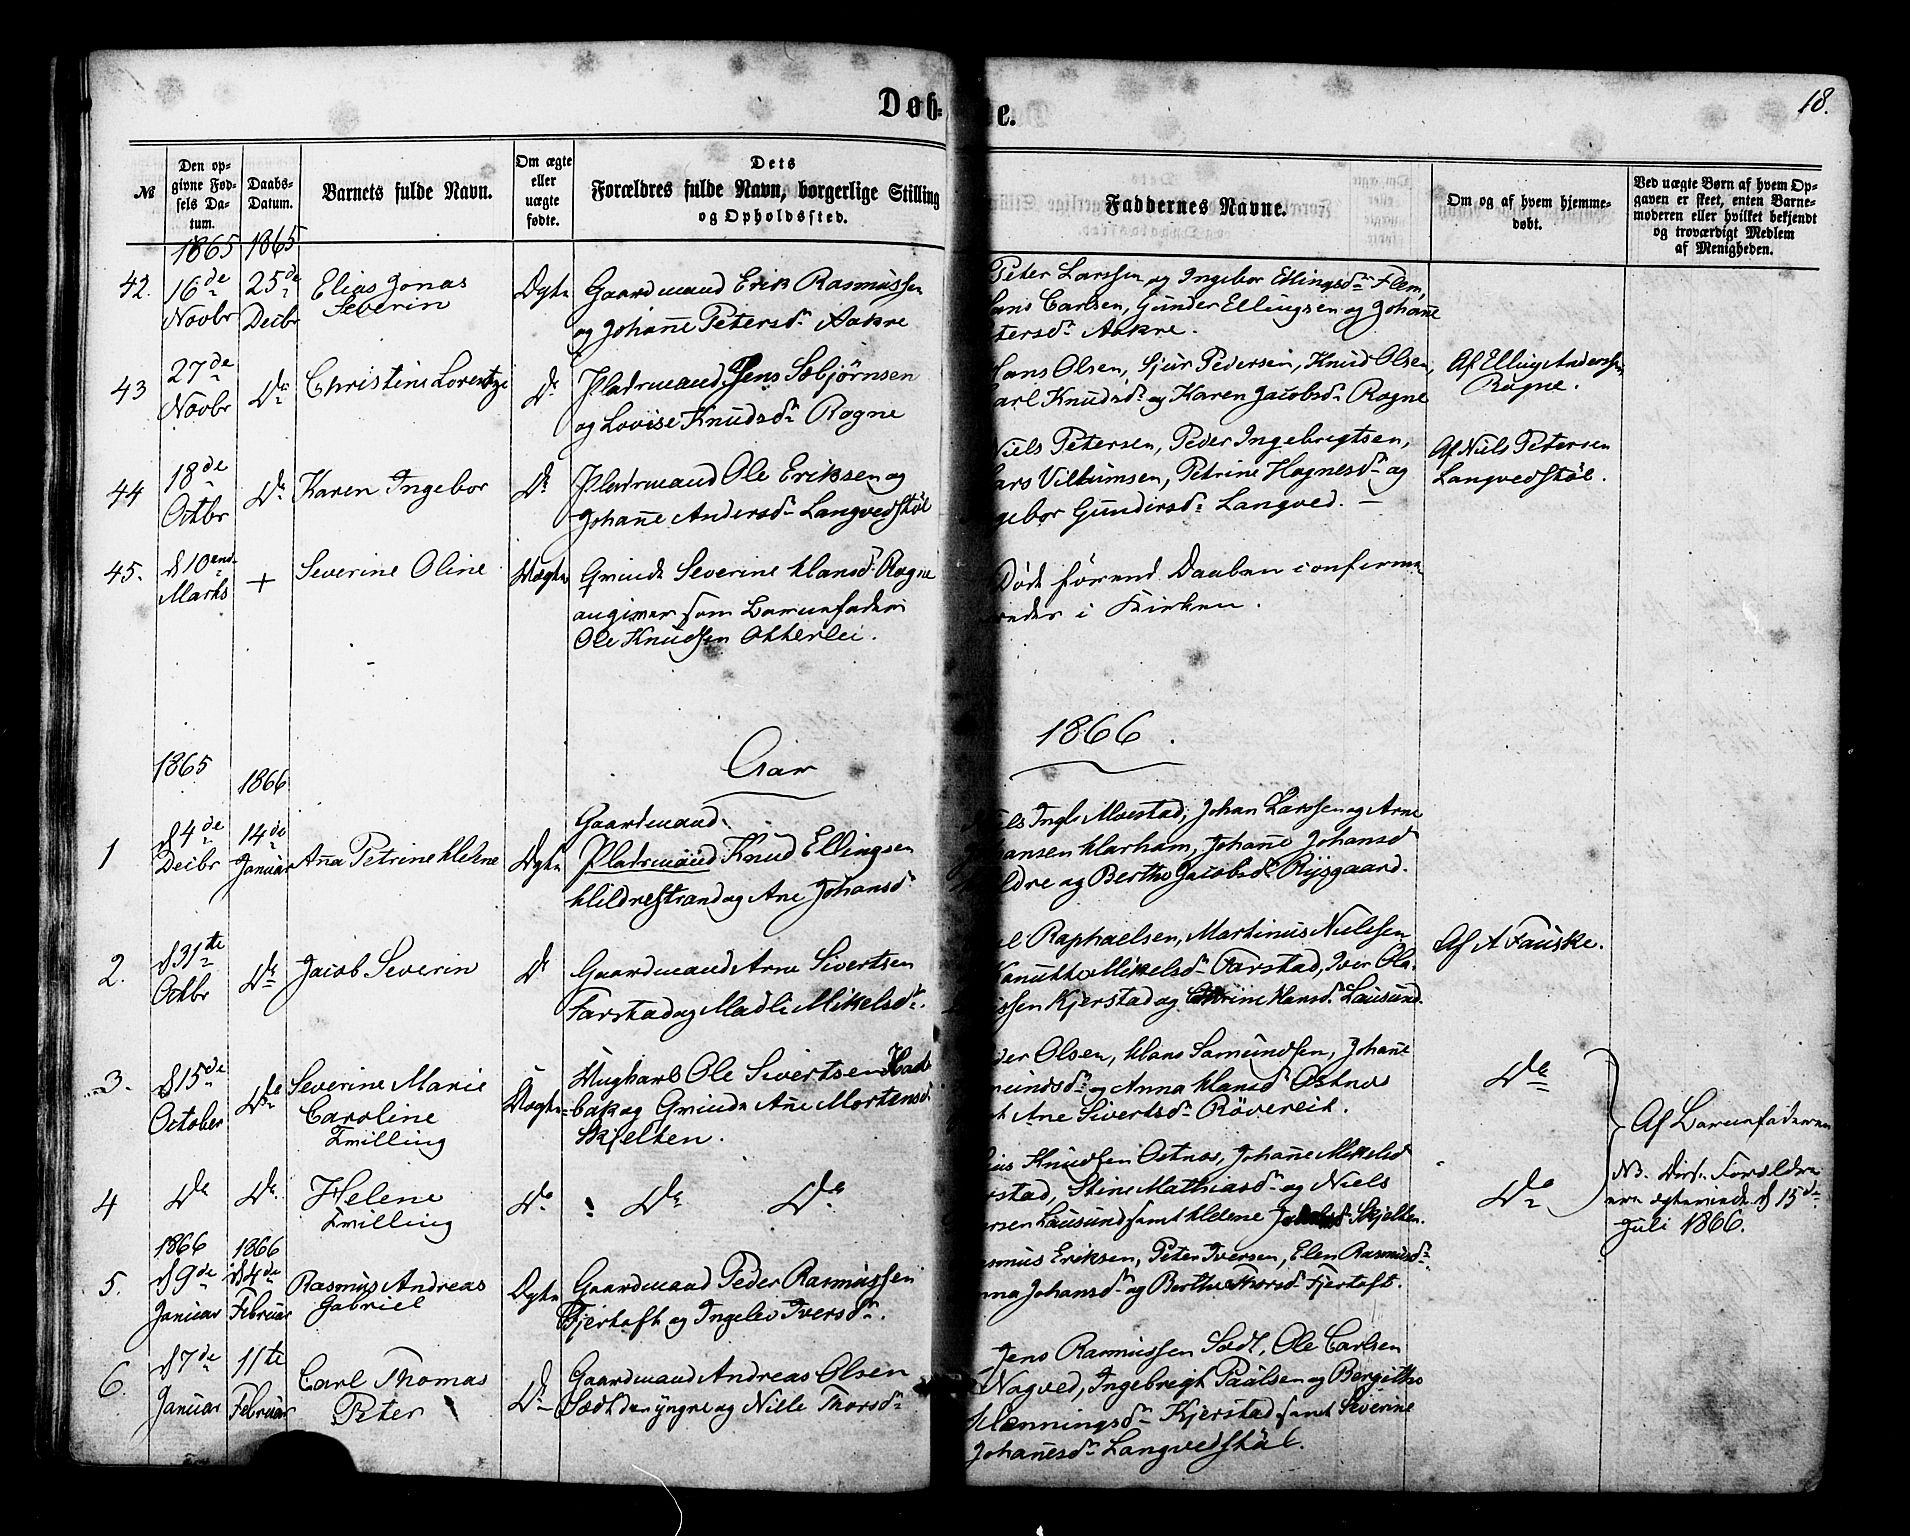 Døb-
e.
18.
№
Den op-
givne Fød-
sels Da-
tum.
Daabs-
Datum.
Barnets fulde Navn.
Om ægte
eller
uægte
fødte.
Dets
Forældres fulde Navn, borgerlige Stilling
og Opholdssted.
Faddernes Navne.
Om og af hvem hjemme-
døbt.
Ved uægte Børn af hvem Op-
gaven er skeet, enten Barne-
moderen eller hvilket bekjendt
og troværdigt Medlem
af Menigheden.
1865 1865
42. 16de Novbr 25de Decbr
Elias Jonas
Severin
Ægte
Gaardmand Erik Rasmussen
og Johanne Petersdr Aakre
Peter Larssen og Ingebor Ellingsdr Flem,
ans Carlsen, Gunder Ellingsen og Johanne
tersdr Aakre.
43 27de Novbr Do
Christine Lorentze
Do
Pladsmand Jens Sebjørnsen
og Lovise Knudsdr Rogne
Hans Olsen, Sjur Pedersen, Knud Olsen,
arl Knudsdr og Karen Jacobsdr Rogne
Af Elling Anderssen
Rogne.
44 18de Octbr Do
Karen Ingebor
Do
Pladsmand Ole Eriksen og
Johanne Andersdr Langvedstøl
Niels Petersen, Peder Ingebrigtsen,
ars Villumsen, Petrine Hagnesdr og
gebor Gundersdr Langved. —
Af Niels Petersen
Langvedstøl.
45. d 10 Marts +
Severine Oline
Uægte
Qvinde Severine Hansdr Rogne
angiver som Barnefader:
Ole Knudsen Otterlei.
Døde førend Daaben confirme
redes i Kirken.
Aar
1866.
1865
1866
1 d 4de Decbr 14de Januar
Ana Petrine Helene
Ægte
Gaardmand
Pladsmand Knud Ellingsen
Hildrestrand og Ane Johansdr
Niels Ingls Moestad, Johan Larssen og Arne
hansen Harham, Johanne Johansd
ldre og Berthe Jacobsdr Rysgaard.
2. d 31te Octbr Do
Jacob Severin
Do
Gaardmand Arne Sivertsen
Farstad og Madli Mikelsdr.
el Raphaelsen, Martinus Nielssen
Kanutte Mikelsdr Farstad, Iver Ola-
ssen Kjerstad og Hansdr Lausund.
Af A Fauske.
3. d 15de October Do
Severine Marie
Caroline
Tvilling
Uægte
Ungkarl Ole Sivertsen
bak og Qvinde Ane Mortensd
Skjelten.
der Olsen, Hans Samundsen, Johanne
mundsdr og Anna Hansdr Ostnes
t Ane Sivertsdr Røvereit.
Do
Af Barnefaderen
4 Do Do
Helene
Tvilling
Do
Do Do
ius Knudsen Ostnes, Johanne Mikelsd
rstad, Stine Mathiasdr og Niels
ersen Lausund samt Helene Skjelten.
Do
NB. Disse Forældre
ere ægteviede d 15de
Juli 1866.
1866 1866
5. d 9de Januar d 4de Februar
Rasmus Andreas
Gabriel
Ægte
Gaardmand Peder Rasmussen
Fjertoft og Ingelev Iversdr.
smus Eriksen, Peter Iversen, Elen Rasmusdr.
nna Johansdr og Berthe Thorsdr Fjertoft.
6. d 7de Januar 11te Februar
Carl Thomas
Peter
Do
Gaardmand Andreas Olsen
Sødt den yngre og Nille Thorsdr
Jens Rasmussen Sødt, Ole Carlsen
Nogved, Ingebrigt Paulsen og Bergithe
Henningsdr Kjerstad samt Severine
Johannesdr Langvedstøl.